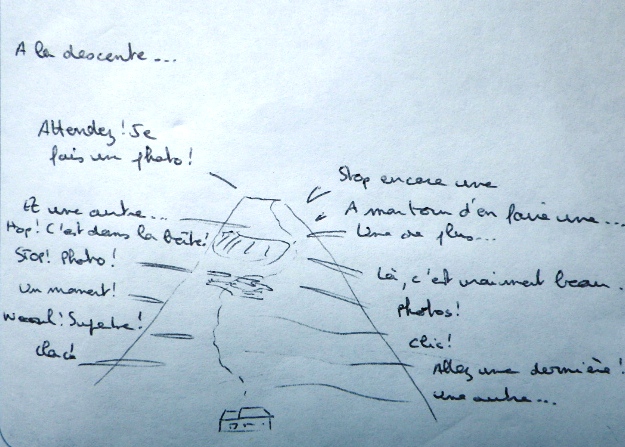 A la descente...
Attendez! Je
fais un photo!
Et une autre...
Hop! C'est dans la boîte!
STOP! Photo!
Un moment!
Waouh! Superbe!
Clac!
Stop encore une
A mon tour d'en faire une...
Une de plus...
Là, c'est vraiment beau.
Photos!
Clic!
Allez une dernière!
une autre...